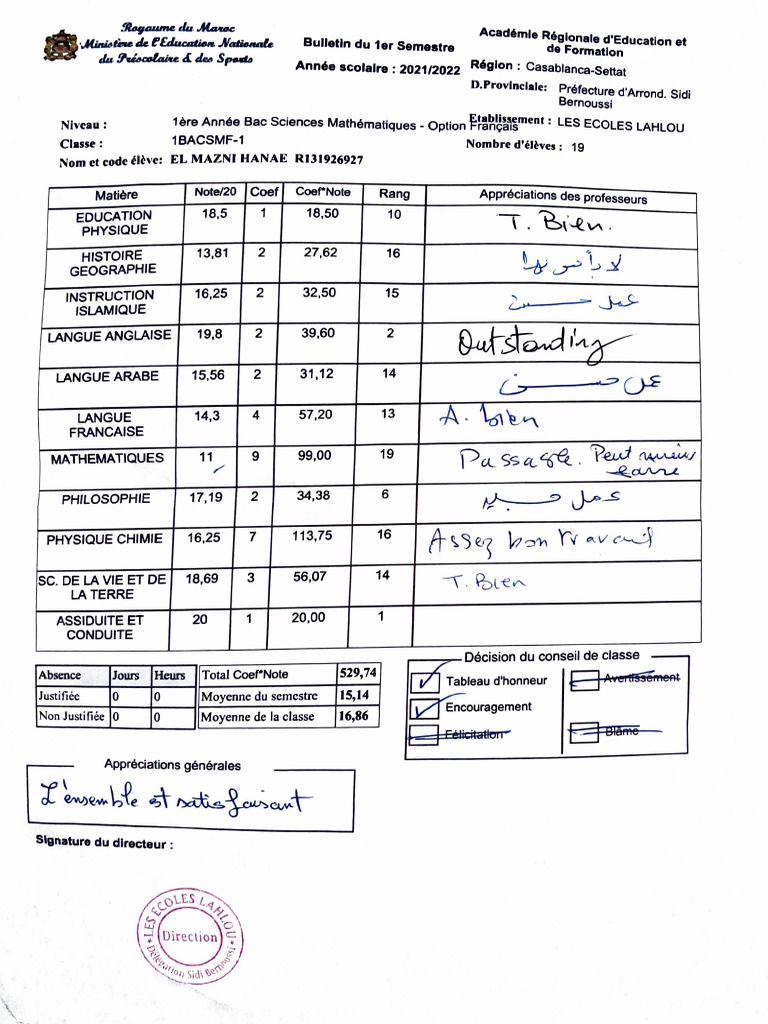 Royaume du Maroc
Ministère de l'Education Nationale
du Préscolaire & des Sports
Bulletin du 1er Semestre
Année scolaire : 2021/2022
Académie Régionale d'Education et
de Formation
Région : Casablanca-Settat
D.Provinciale: Préfecture d'Arrond. Sidi
Bernoussi
Etablissement : LES ECOLES LAHLOU
Nombre d'élèves : 19
Niveau : 1ère Année Bac Sciences Mathématiques - Option Français
Classe : 1BACSMF-1
Nom et code élève: EL MAZNI HANAE R131926927
Matière Note/20 Coef Coef*Note Rang Appréciations des professeurs
EDUCATION PHYSIQUE 18,5 1 18,50 10 T. Bien.
HISTOIRE GEOGRAPHIE 13,81 2 27,62 16 لا بأس بها
INSTRUCTION ISLAMIQUE 16,25 2 32,50 15 عمل حسن
LANGUE ANGLAISE 19,8 2 39,60 2 Outstanding
LANGUE ARABE 15,56 2 31,12 14 عمل حسن
LANGUE FRANCAISE 14,3 4 57,20 13 A. bien
MATHEMATIQUES 11 9 99,00 19 Passable. Peut mieux faire
PHILOSOPHIE 17,19 2 34,38 6 عمل جيد
PHYSIQUE CHIMIE 16,25 7 113,75 16 Assez bon travail
SC. DE LA VIE ET DE LA TERRE 18,69 3 56,07 14 T. Bien
ASSIDUITE ET CONDUITE 20 1 20,00 1
Absence Jours Heurs
Justifiée 0 0
Non Justifiée 0 0
Total Coef*Note 529,74
Moyenne du semestre 15,14
Moyenne de la classe 16,86
Décision du conseil de classe
Tableau d'honneur
Encouragement
Félicitation
Avertissement
Blâme
Appréciations générales
L'ensemble est satisfaisant
Signature du directeur :
LES ECOLES LAHLOU
Direction
Délégation Sidi Bernoussi